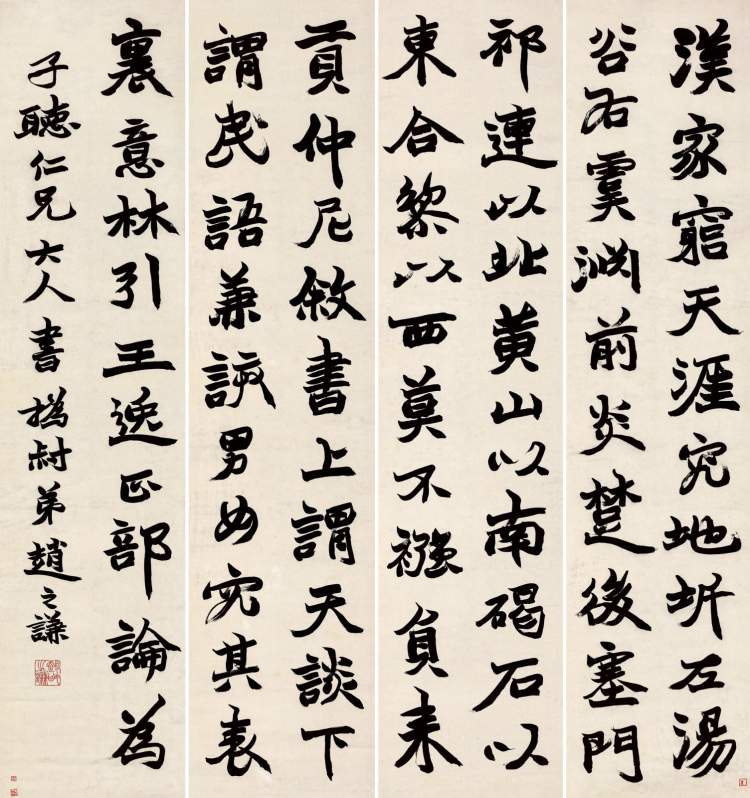 漢家窮天涯究地圻左湯
谷右虞淵前炎楚後塞門
祁連以北黄山以南碣石以
東合黎以西莫不襁負来
貢仲尼敘書上謂天談下
謂民語兼該男女究其表
裏意林引王逸正部論為
子聽仁兄大人書撝叔弟趙之謙